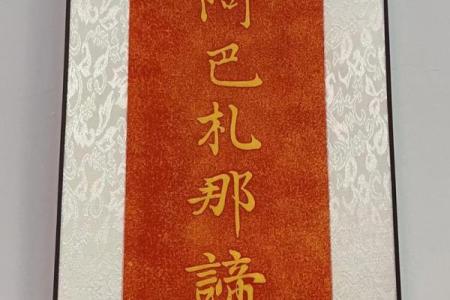 巴
札
那
諦